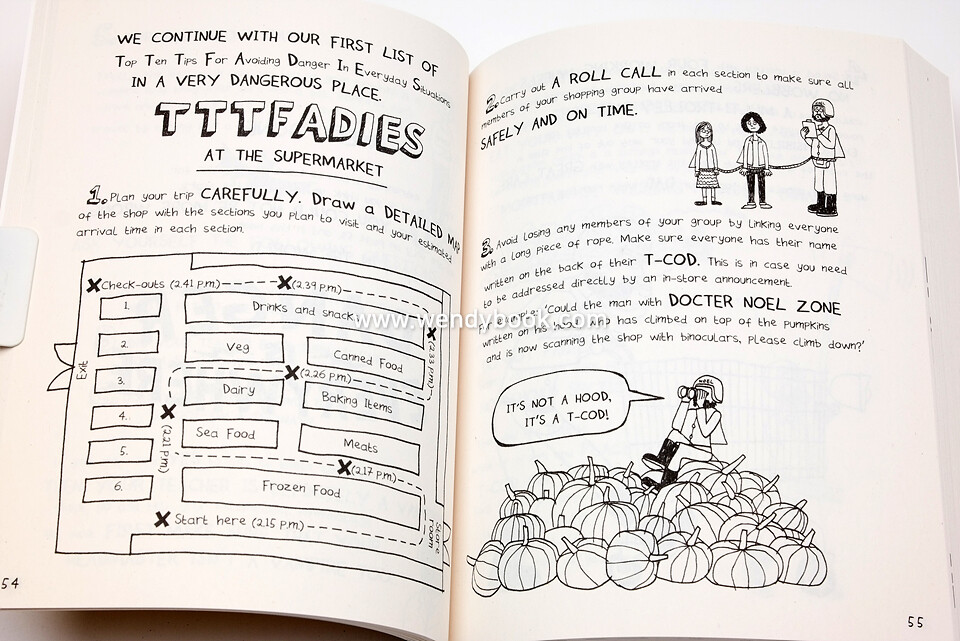 WE CONTINUE WITH OUR FIRST LIST OF
Top Ten Tips For Avoiding Danger In Everyday Situations
IN A VERY DANGEROUS PLACE.
TTTFADIES
AT THE SUPERMARKET
1. Plan your trip CAREFULLY. Draw a DETAILED MAP
of the shop with the sections you plan to visit and your estimated
arrival time in each section.
Check-outs (2.41 p.m.)
(2.39 p.m.)
1.
2.
3.
4.
5.
6.
Exit
Drinks and snacks
Veg
Canned Food
(2.33 p.m.)
(2.26 p.m.)
Dairy
Baking Items
(2.21 p.m.)
Sea Food
Meats
(2.17 p.m.)
Frozen Food
Start here (2.15 p.m.)
Store room
54
2. Carry out A ROLL CALL in each section to make sure all
members of your shopping group have arrived
SAFELY AND ON TIME.
3. Avoid losing any members of your group by linking everyone
with a long piece of rope. Make sure everyone has their name
written on the back of their T-COD. This is in case you need
to be addressed directly by an in-store announcement.
For example: 'Could the man with DOCTER NOEL ZONE
written on his hood who has climbed on top of the pumpkins
and is now scanning the shop with binoculars, please climb down?'
IT'S NOT A HOOD,
IT'S A T-COD!
NOEL
55
www.wendybook.com